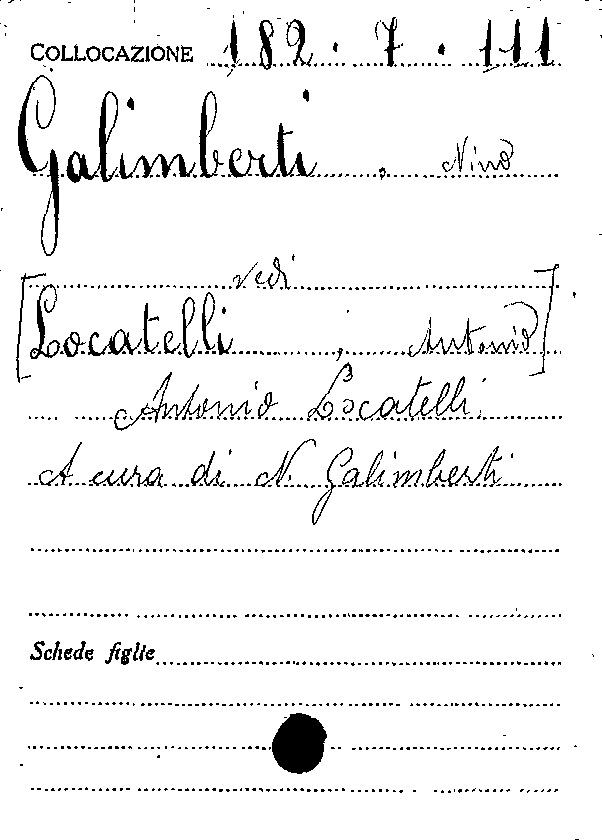 COLLOCAZIONE 182.7.111
Galimberti, Nino
vedi
[Locatelli, Antonio]
Antonio Locatelli.
A cura di N. Galimberti
Schede figlie